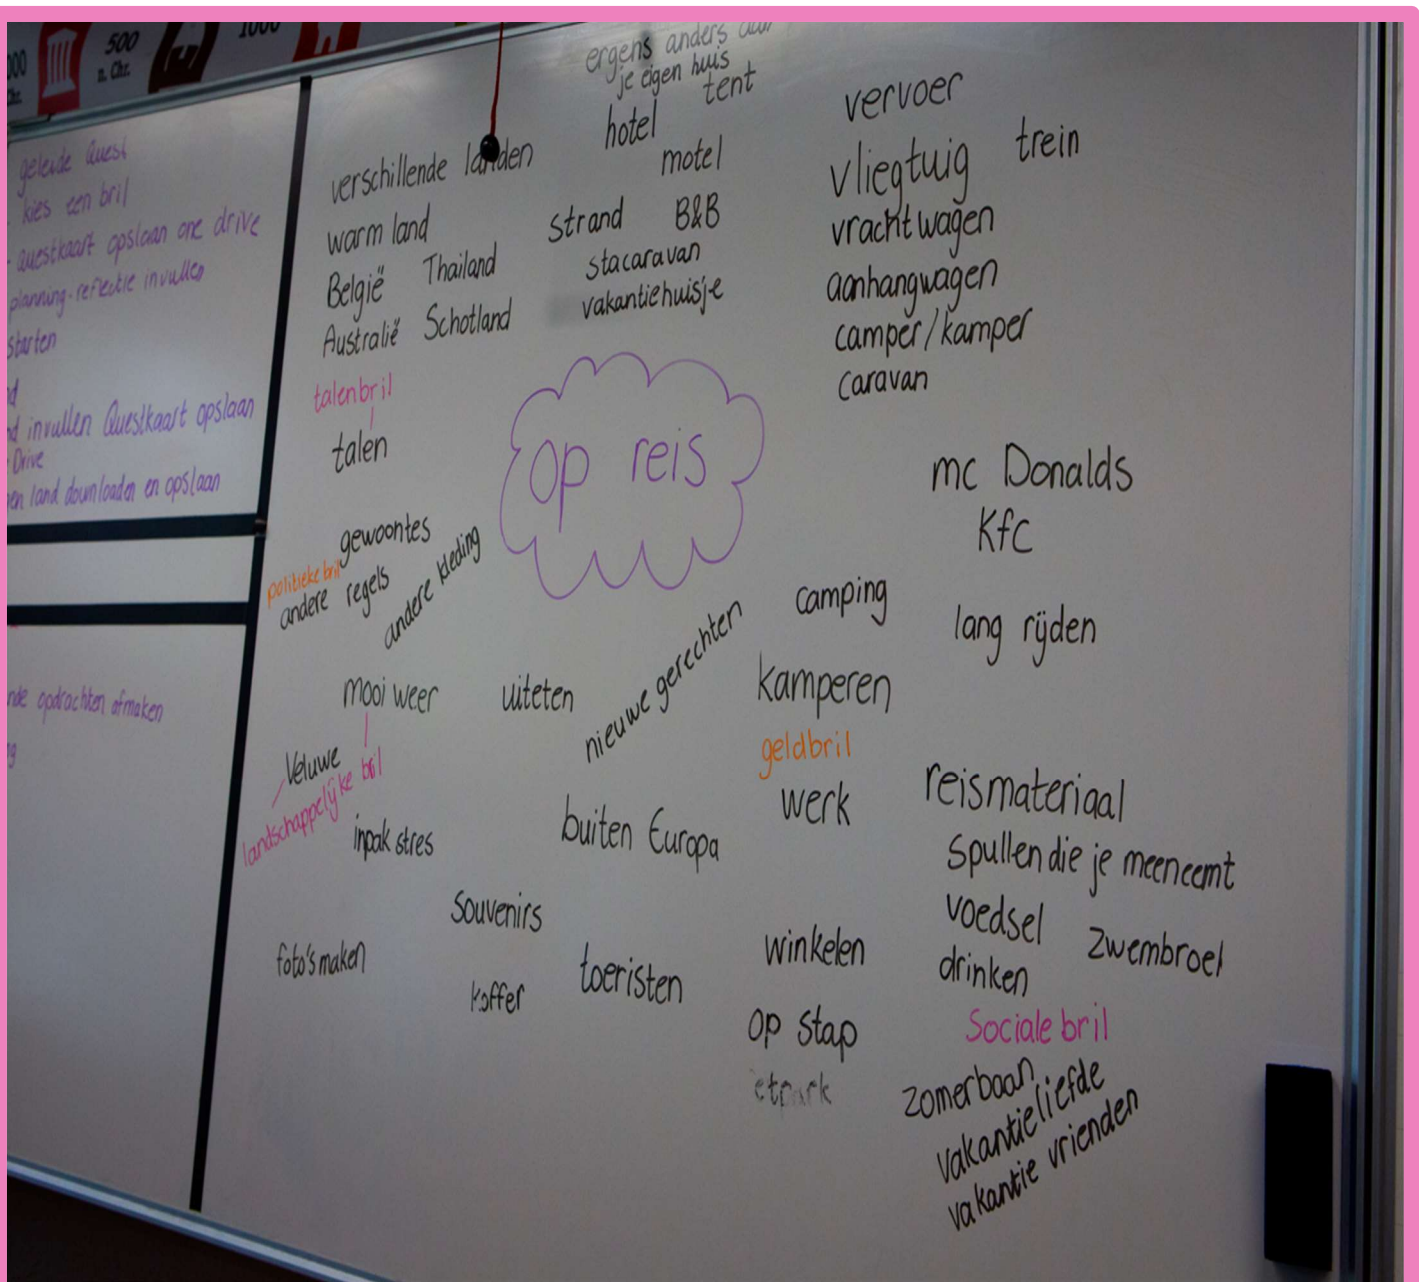 500
n. Chr.
1000
geleide Quest
kies een bril
- Questkaart opslaan one drive
planning-reflectie invullen
starten
invullen Questkaart opslaan
Drive
land downloaden en opslaan
opdrachten afmaken
ergens anders dan
je eigen huis
tent
hotel
motel
verschillende landen
warm land
strand B&B
België Thailand
stacaravan
Australië Schotland
vakantiehuisje
vervoer
vliegtuig trein
vrachtwagen
aanhangwagen
camper/kamper
caravan
talenbril
talen
op reis
mc Donalds
Kfc
gewoontes
politieke bril
andere regels
andere kleding
camping
lang rijden
nieuwe gerechten
kamperen
mooi weer
uiteten
geldbril
werk
Veluwe
landschappelijke bril
inpak stres
buiten Europa
reismateriaal
spullen die je meeneemt
voedsel
zwembroek
drinken
souvenirs
foto's maken
koffer
toeristen
winkelen
op stap
etpark
Sociale bril
zomerbaan
vakantieliefde
vakantie vrienden